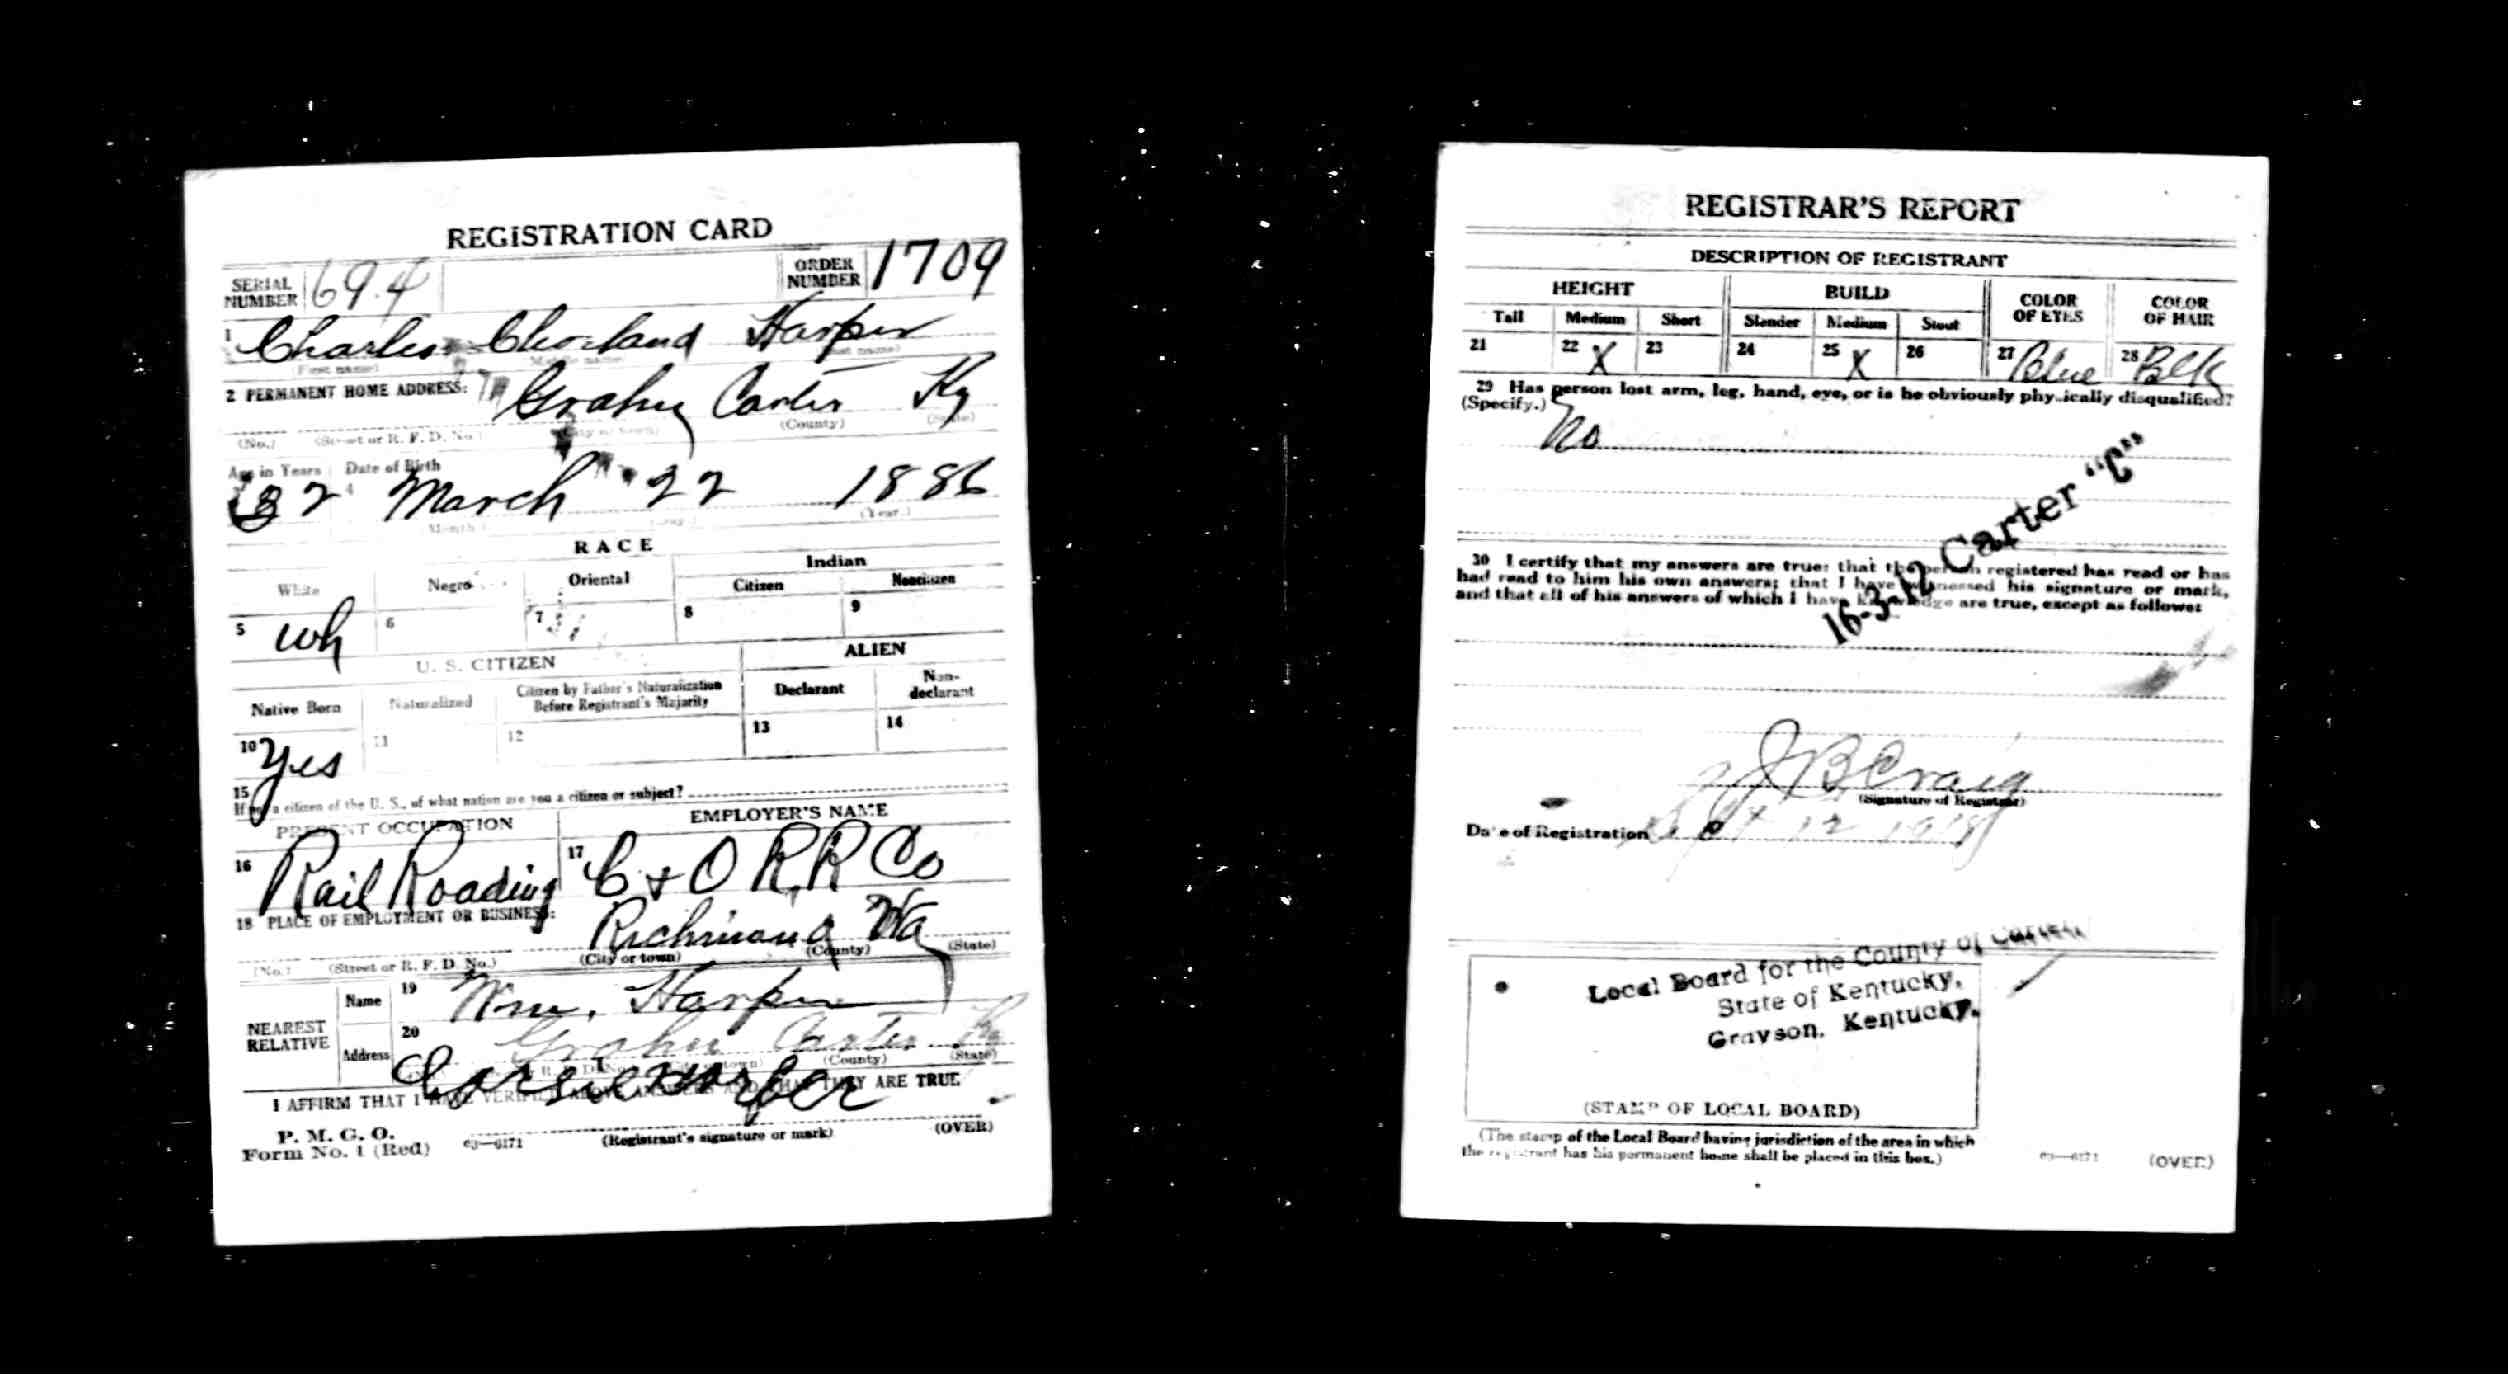 REGISTRATION CARD
SERIAL NUMBER 694 ORDER NUMBER 1709
1 Charles Harper
(First name) (Middle name) (Last name)
2 PERMANENT HOME ADDRESS: Grahn Carter Ky
(No.) (Street or R. F. D. No.) (City or town) (County) (State)
Age in Years Date of Birth
32 4 March 22 1886
(Month) (Day) (Year)
RACE
White Negro Oriental Indian
Citizen Noncitizen
5 wh 6 7 8 9
U. S. CITIZEN ALIEN
Native Born Naturalized Citizen by Father's Naturalization Before Registrant's Majority Declarant Non-declarant
10 Yes 11 12 13 14
15
If not a citizen of the U. S., of what nation are you a citizen or subject?
PRESENT OCCUPATION EMPLOYER'S NAME
16 Rail Roading 17 C + O R R Co
18 PLACE OF EMPLOYMENT OR BUSINESS:
Richmond Va
(No.) (Street or R. F. D. No.) (City or town) (County) (State)
NEAREST RELATIVE Name 19 Wm. Harper
Address 20 Grahn Carter Ky
(County) (State)
I AFFIRM THAT I HAVE VERIFIED ABOVE ANSWERS AND THAT THEY ARE TRUE
Harper
P. M. G. O.
Form No. 1 (Red) 03—6171 (Registrant's signature or mark) (OVER)
REGISTRAR'S REPORT
DESCRIPTION OF REGISTRANT
HEIGHT BUILD COLOR OF EYES COLOR OF HAIR
Tall Medium Short Slender Medium Stout
21 22 X 23 24 25 X 26 27 Blue 28 Blk
29 Has person lost arm, leg, hand, eye, or is he obviously physically disqualified?
(Specify.) No
16-3-12 Carter "C"
30 I certify that my answers are true; that the person registered has read or has
had read to him his own answers; that I have witnessed his signature or mark,
and that all of his answers of which I have knowledge are true, except as follows:
J B Craig
(Signature of Registrar)
Date of Registration Sept 12 1918
Local Board for the County of Carter,
State of Kentucky,
Grayson, Kentucky.
(STAMP OF LOCAL BOARD)
(The stamp of the Local Board having jurisdiction of the area in which
the registrant has his permanent home shall be placed in this box.)
03—6171 (OVER)